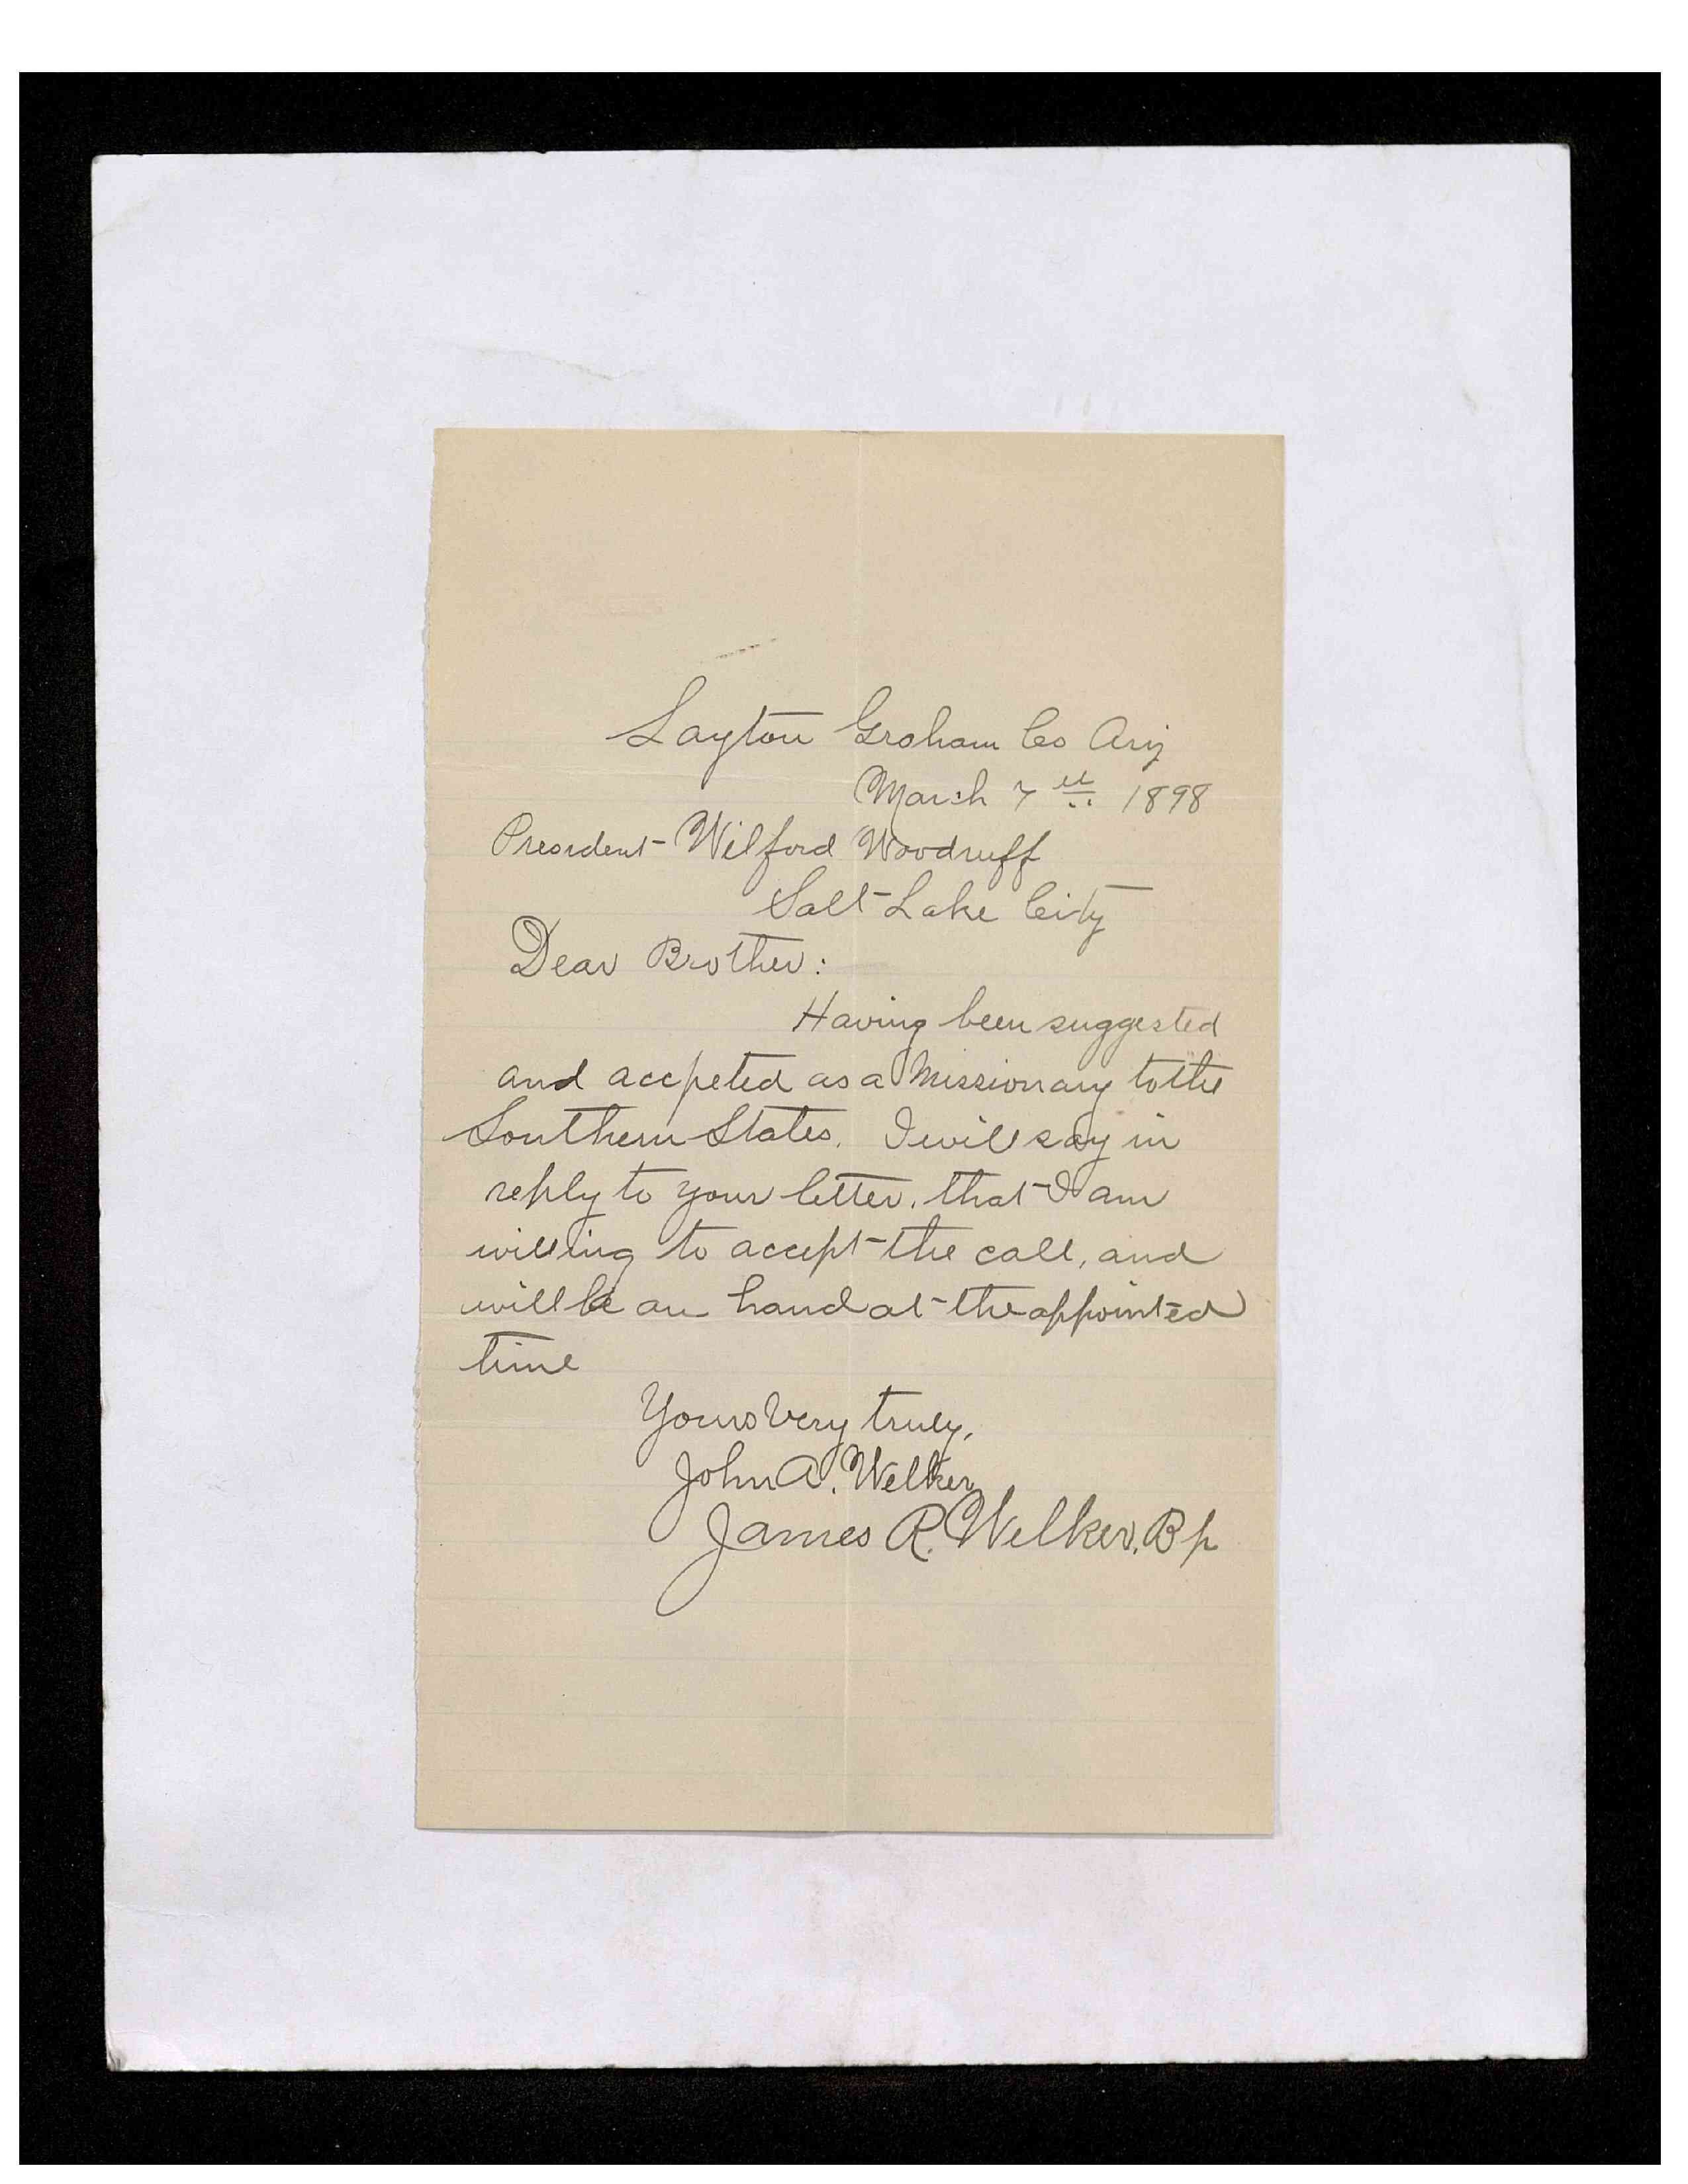 Layton Graham Co Ariz
March 7th 1898
President Wilford Woodruff
Salt Lake City
Dear Brother:
Having been suggested
and accpeted as a Missionary to the
Southern States. I will say in
reply to your letter, that I am
willing to accept the call, and
will be on hand at the appointed
time
Yours Very truly,
John A. Welker
James R. Welker, Bp